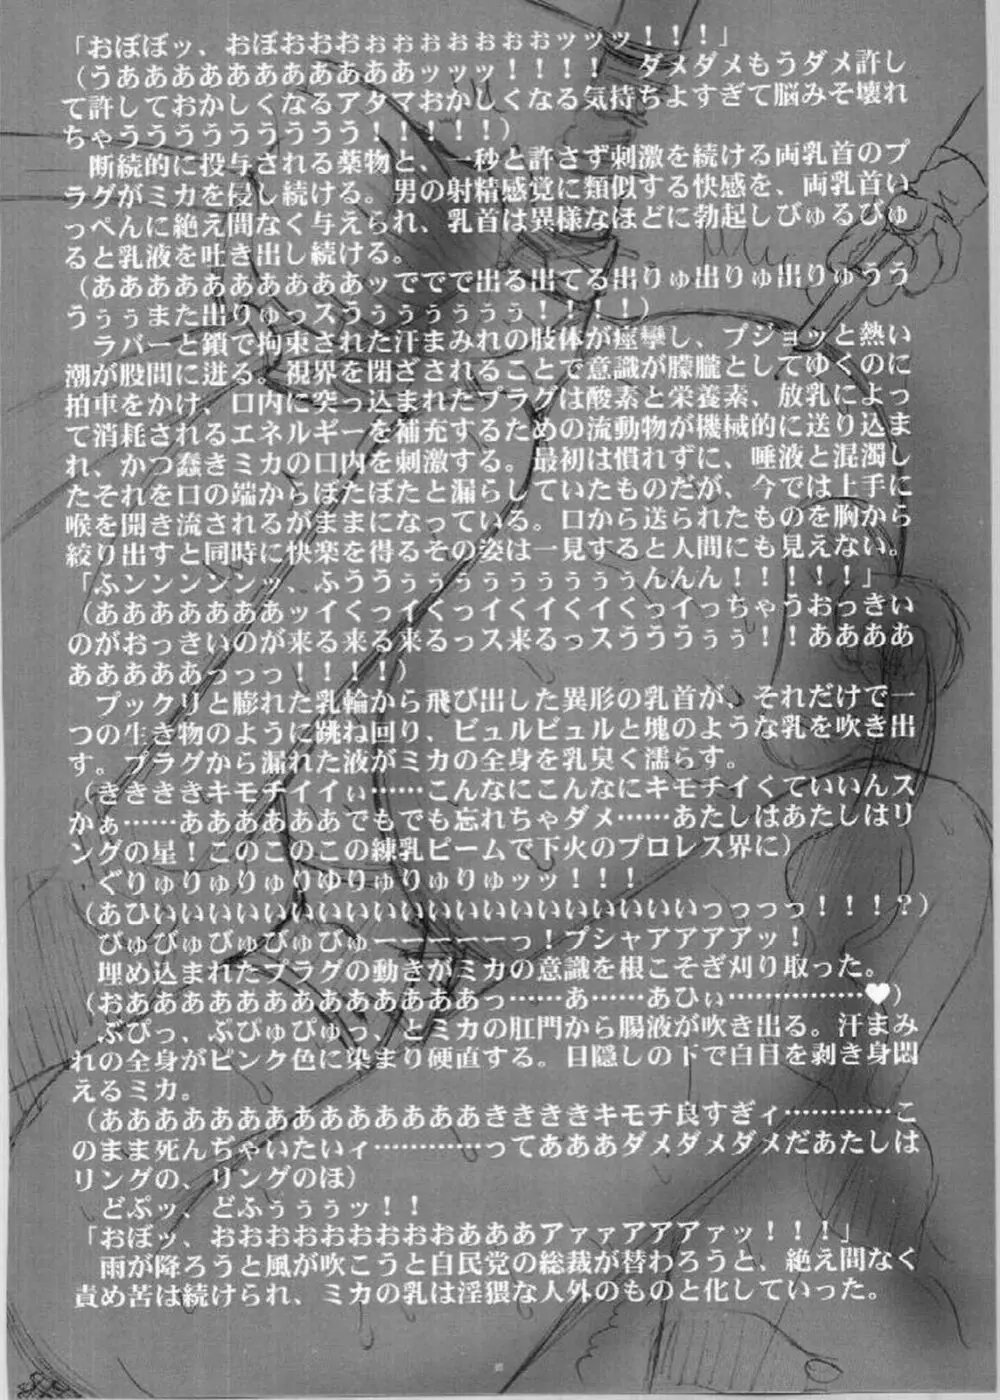 「おぼぼッ、おぼおおおぉぉぉぉぉぉぉッッッ！！！」
（うあああああああああああッッッ！！！！　ダメダメもうダメ許し
て許しておかしくなるアタマおかしくなる気持ちよすぎて脳みそ壊れ
ちゃうううううううううう！！！！！）
　断続的に投与される薬物と、一秒と許さず刺激を続ける両乳首のプ
ラグがミカを侵し続ける。男の射精感覚に類似する快感を、両乳首い
っぺんに絶え間なく与えられ、乳首は異様なほどに勃起しびゅるびゅ
ると乳液を吐き出し続ける。
（ああああああああああッでででで出る出てる出りゅ出りゅ出りゅうう
うぅぅまた出りゅっスうぅぅぅぅぅぅぅ！！！！）
　ラバーと鎖で拘束された汗まみれの肢体が痙攣し、プジョッと熱い
潮が股間に迸る。視界を閉ざされることで意識が朦朧としてゆくのに
拍車をかけ、口内に突っ込まれたプラグは酸素と栄養素、放乳によっ
て消耗されるエネルギーを補充するための流動物が機械的に送り込ま
れ、かつ蠢きミカの口内を刺激する。最初は慣れずに、唾液と混濁し
たそれを口の端からぼたぼたと漏らしていたものだが、今では上手に
喉を開き流されるがままになっている。口から送られたものを胸から
絞り出すと同時に快楽を得るその姿は一見すると人間にも見えない。
「ふンンンンンッ、ふううぅぅぅぅぅぅぅぅぅんんん！！！！！」
（あああああああッイくっイくっイくイくイくっイっちゃうおっきい
のがおっきいのが来る来る来るっス来るっスうううぅぅ！！ああああ
ああああああっっっ！！！！）
　プックリと膨れた乳輪から飛び出した異形の乳首が、それだけで一
つの生き物のように跳ね回り、ビュルビュルと塊のような乳を吹き出
す。プラグから漏れた液がミカの全身を乳臭く濡らす。
（きききキモチイイぃ……こんなにこんなにキモチイくていいんス
かぁ……ああああああでもでも忘れちゃダメ……あたしはあたしはリ
ングの星！このこのこの練乳ビームで下火のプロレス界に）
　ぐりゅりゅりゅりゆりゅりゅりゅッッ！！！
（あひぃいいいいいいいいいいいいいいいいいいいっっっっ！！！？）
　びゅびゅびゅびゅびゅーーーーーっ！プシャアアアアッ！
　埋め込まれたプラグの動きがミカの意識を根こそぎ刈り取った。
（おああああああああああああああっ……あ……あひぃ……………♥）
　ぶぴっ、ぷぴゅびゅっ、とミカの肛門から腸液が吹き出る。汗まみ
れの全身がピンク色に染まり硬直する。目隠しの下で白目を剥き身悶
えるミカ。
（ああああああああああああああきききキモチ良すぎィ…………こ
のまま死んぢゃいたいィ…………ってあああダメダメダメだあたしは
リングの、リングのほ）
　どぷッ、どふぅぅぅッ！！
「おぼッ、おおおおおおおおおあああアァァアアアァッ！！！」
　雨が降ろうと風が吹こうと自民党の総裁が替わろうと、絶え間なく
責め苦は続けられ、ミカの乳は淫猥な人外のものと化していった。